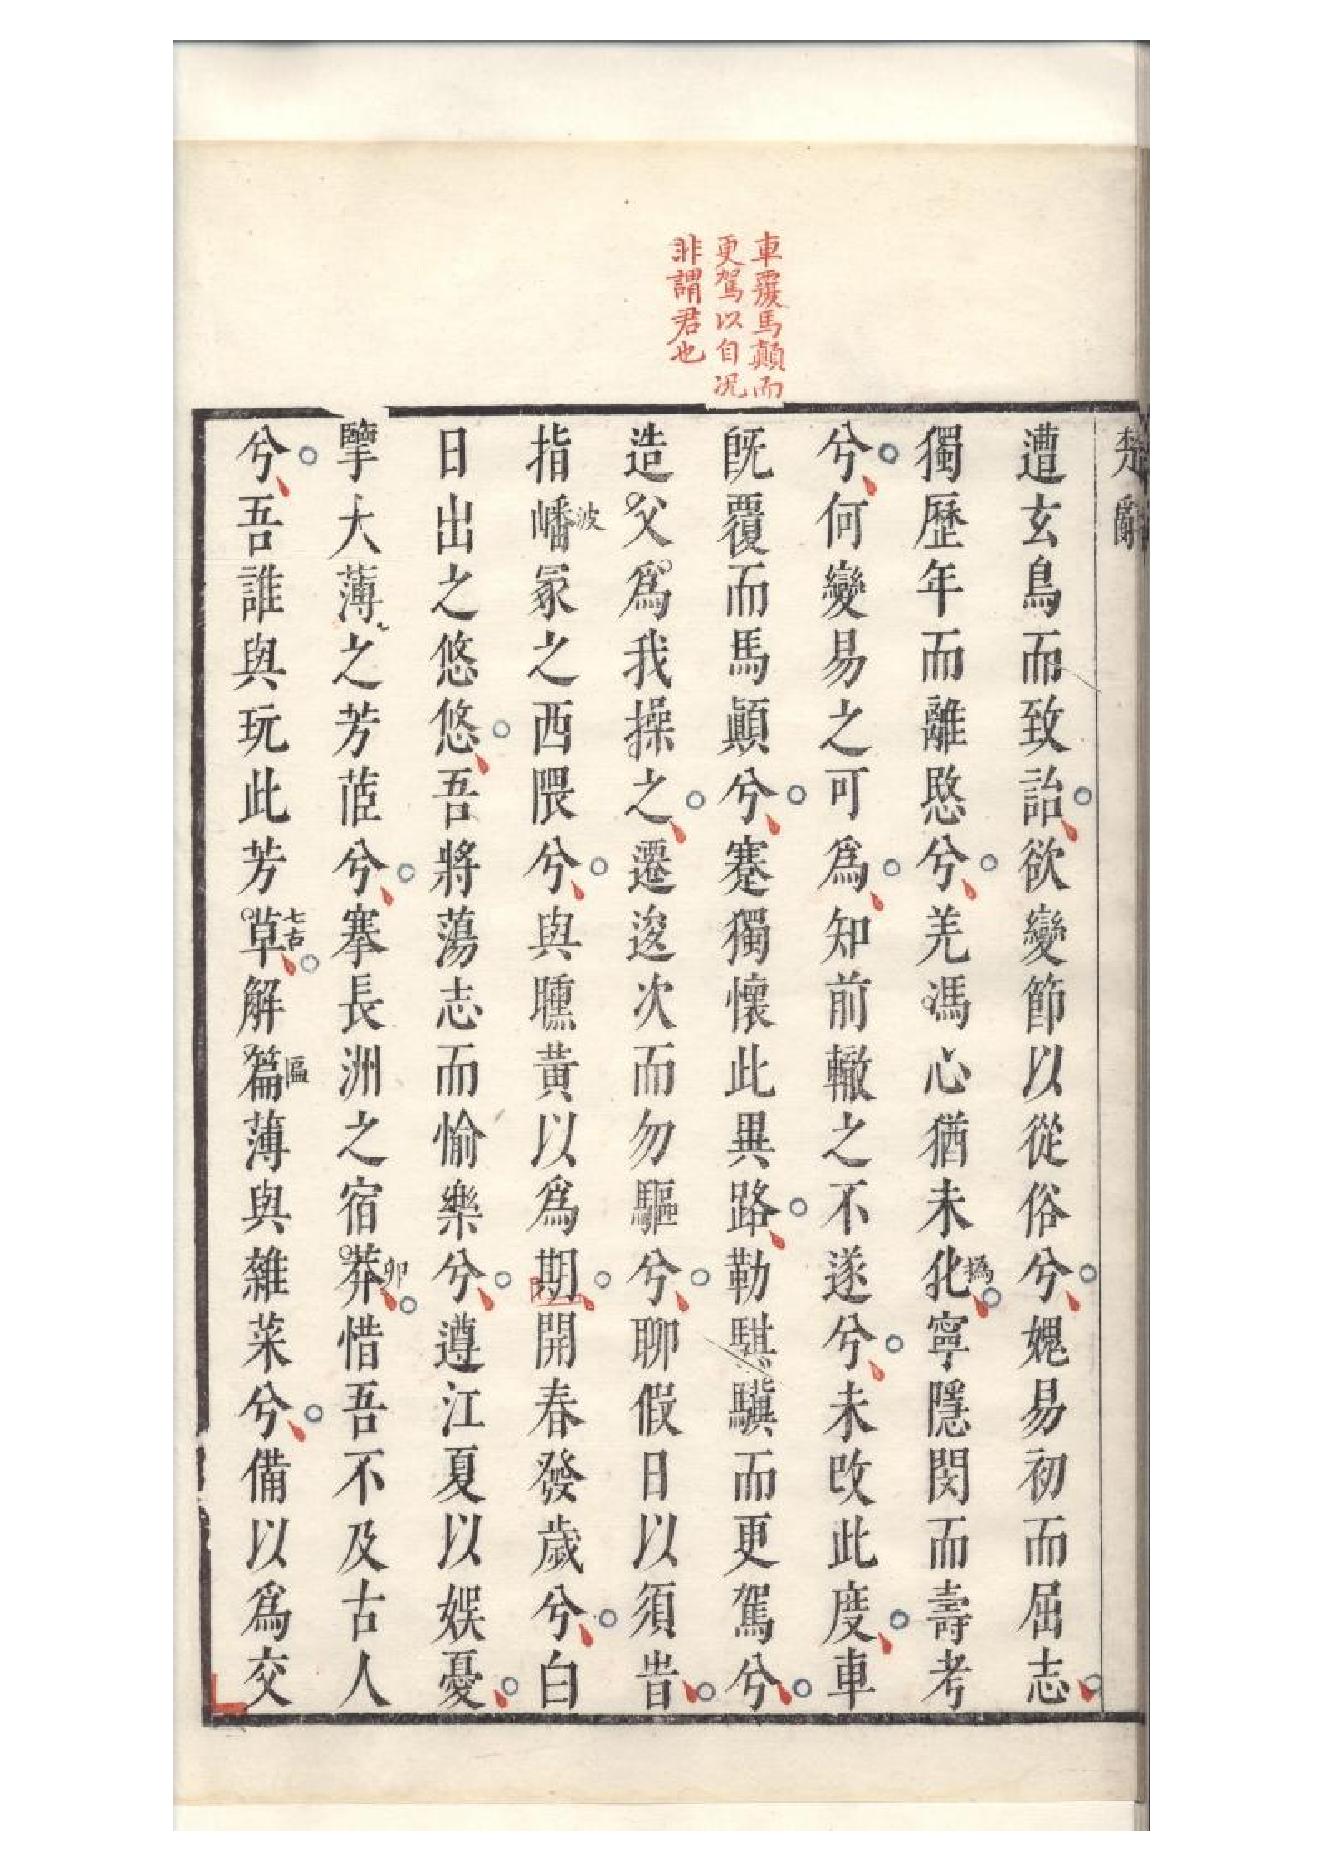 車覆馬顛而
更駕以自况
非謂君也
楚辭
遭玄鳥而致詒欲變節以從俗兮媿易初而屈志
獨歷年而離愍兮羌馮心猶未化寧隱閔而壽考
撝
兮何變易之可爲知前轍之不遂兮未改此度車
旣覆而馬顛兮蹇獨懷此異路勒騏驥而更駕兮
造父爲我操之遷逡次而勿驅兮聊假日以須旹
指嶓冢之西隈兮與曛黃以爲期開春發歲兮白
波
日出之悠悠吾將蕩志而愉樂兮遵江夏以娛憂
擥大薄之芳茝兮搴長洲之宿莽惜吾不及古人
卯
兮吾誰與玩此芳草解篇薄與雜菜兮備以爲交
七古
匾